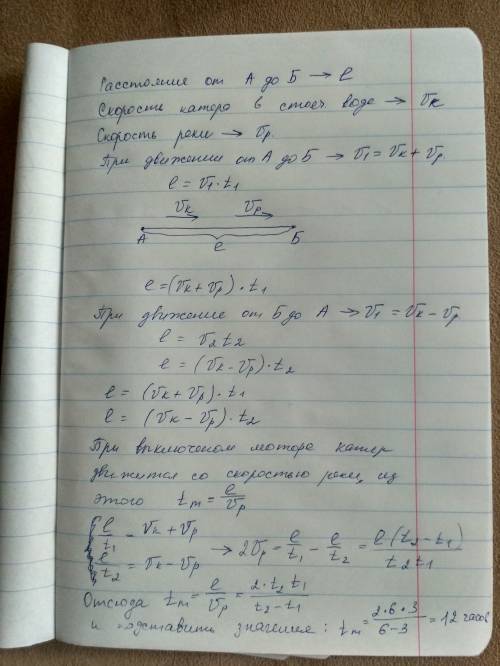 Расстояние от А до Б → ℓ
Скорость катера в стояч. воде → Vк
Скорость реки → Vр.
При движении от А до Б → V1 = Vк + Vр.
ℓ = V1 · t1
Vк Vр
А ℓ Б
ℓ = (Vк + Vр) · t1
При движение от Б до А → V1 = Vк − Vр
ℓ = V2 t2
ℓ = (Vк − Vр) · t2
ℓ = (Vк + Vр) · t1
ℓ = (Vк − Vр) · t2
При выключеном моторе катер
движится со скоростью реки, из
этого tm = ℓ/Vр
ℓ/t1 = Vк + Vр
→ 2Vр = ℓ/t1 − ℓ/t2 = ℓ(t2 − t1)/t2 t1
ℓ/t2 = Vк − Vр
Отсюда tm = ℓ/Vр = 2·t2 t1/t2 − t1
и подставить значения: tm = 2·6·3/6−3 = 12 часов